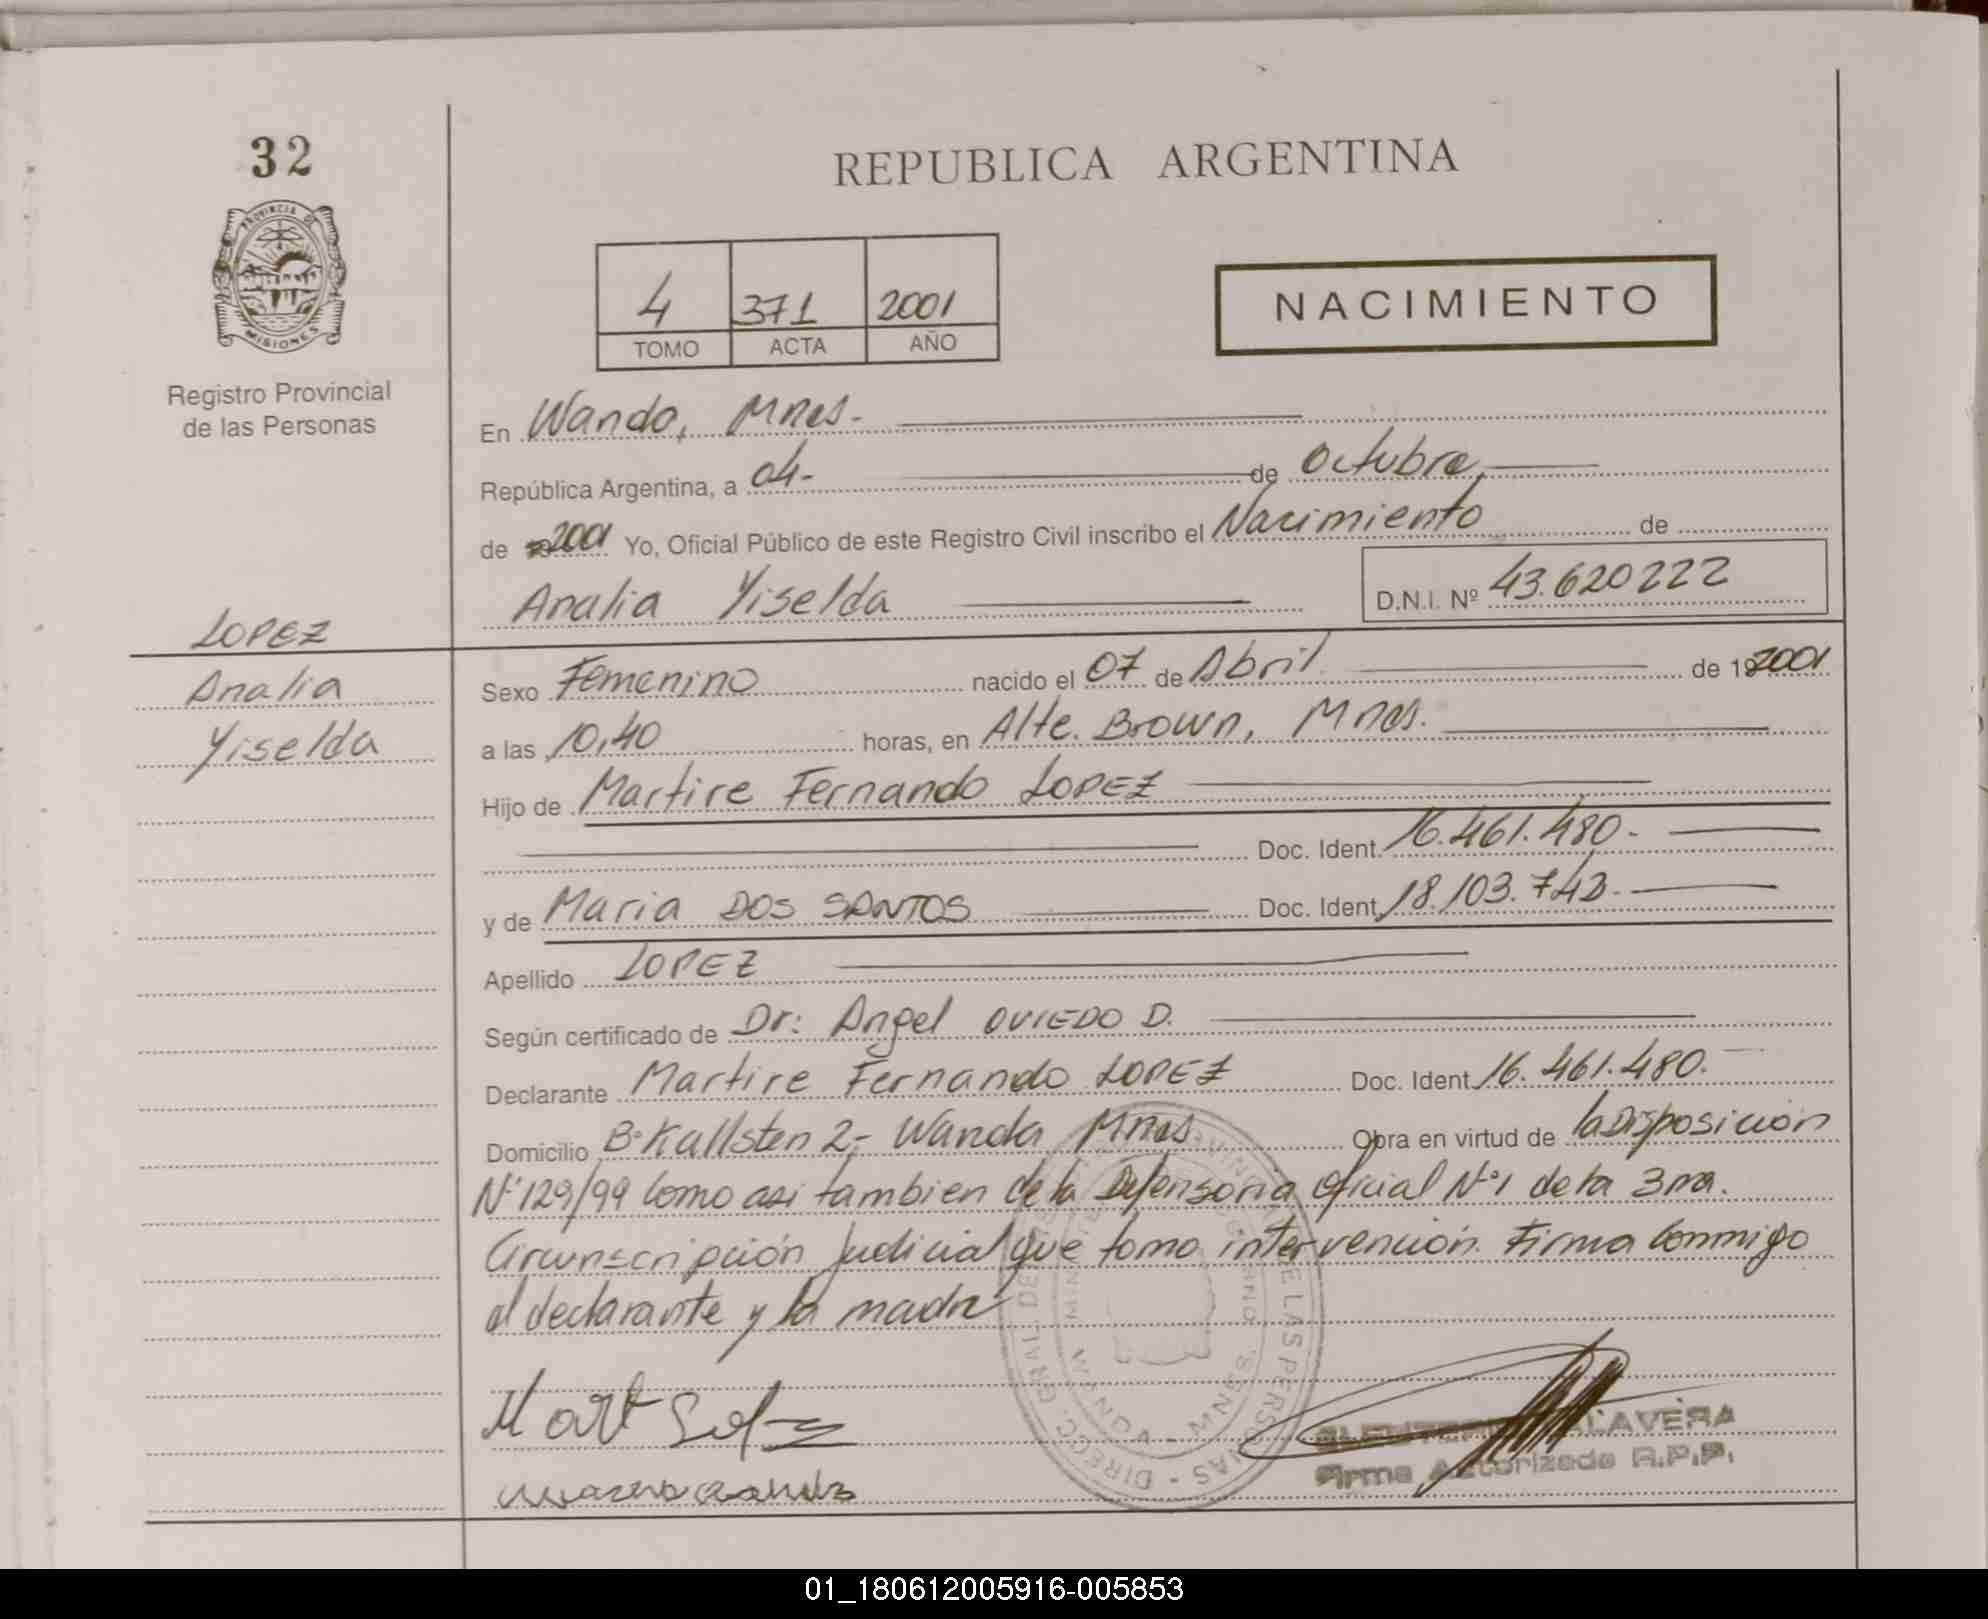 32
REPUBLICA ARGENTINA
PROVINCIA DE
MISIONES
4 371 2001
TOMO ACTA AÑO
NACIMIENTO
Registro Provincial
de las Personas
En Wanda, Mnes.
República Argentina, a 04- de Octubre
de 2001 Yo, Oficial Público de este Registro Civil inscribo el Nacimiento de
Analia Yiselda D.N.I. Nº 43.620222
LOPEZ
Analia
Yiselda
Sexo Femenino nacido el 07 de Abril de 192001
a las 10,40 horas, en Alte. Brown, Mnes.
Hijo de Martire Fernando LOPEZ
Doc. Ident. 16.461.480.-
y de Maria DOS SANTOS Doc. Ident. 18.103.742.-
Apellido LOPEZ
Según certificado de Dr: Angel OVIEDO D.
Declarante Martire Fernando LOPEZ Doc. Ident. 16.461.480.
Domicilio B° Kallsten 2,- Wanda Mnes Obra en virtud de la Disposición
N° 129/99 como asi tambien de la Defensoria Oficial N°1 de la 3ra.
Circunscripción Judicial que tomo intervención. Firma conmigo
el declarante y la madre
DIRECC. GRAL. DE LAS PERSONAS
WANDA - MNES.
TALAVERA
Firma Autorizada R.P.P.
01_180612005916-005853